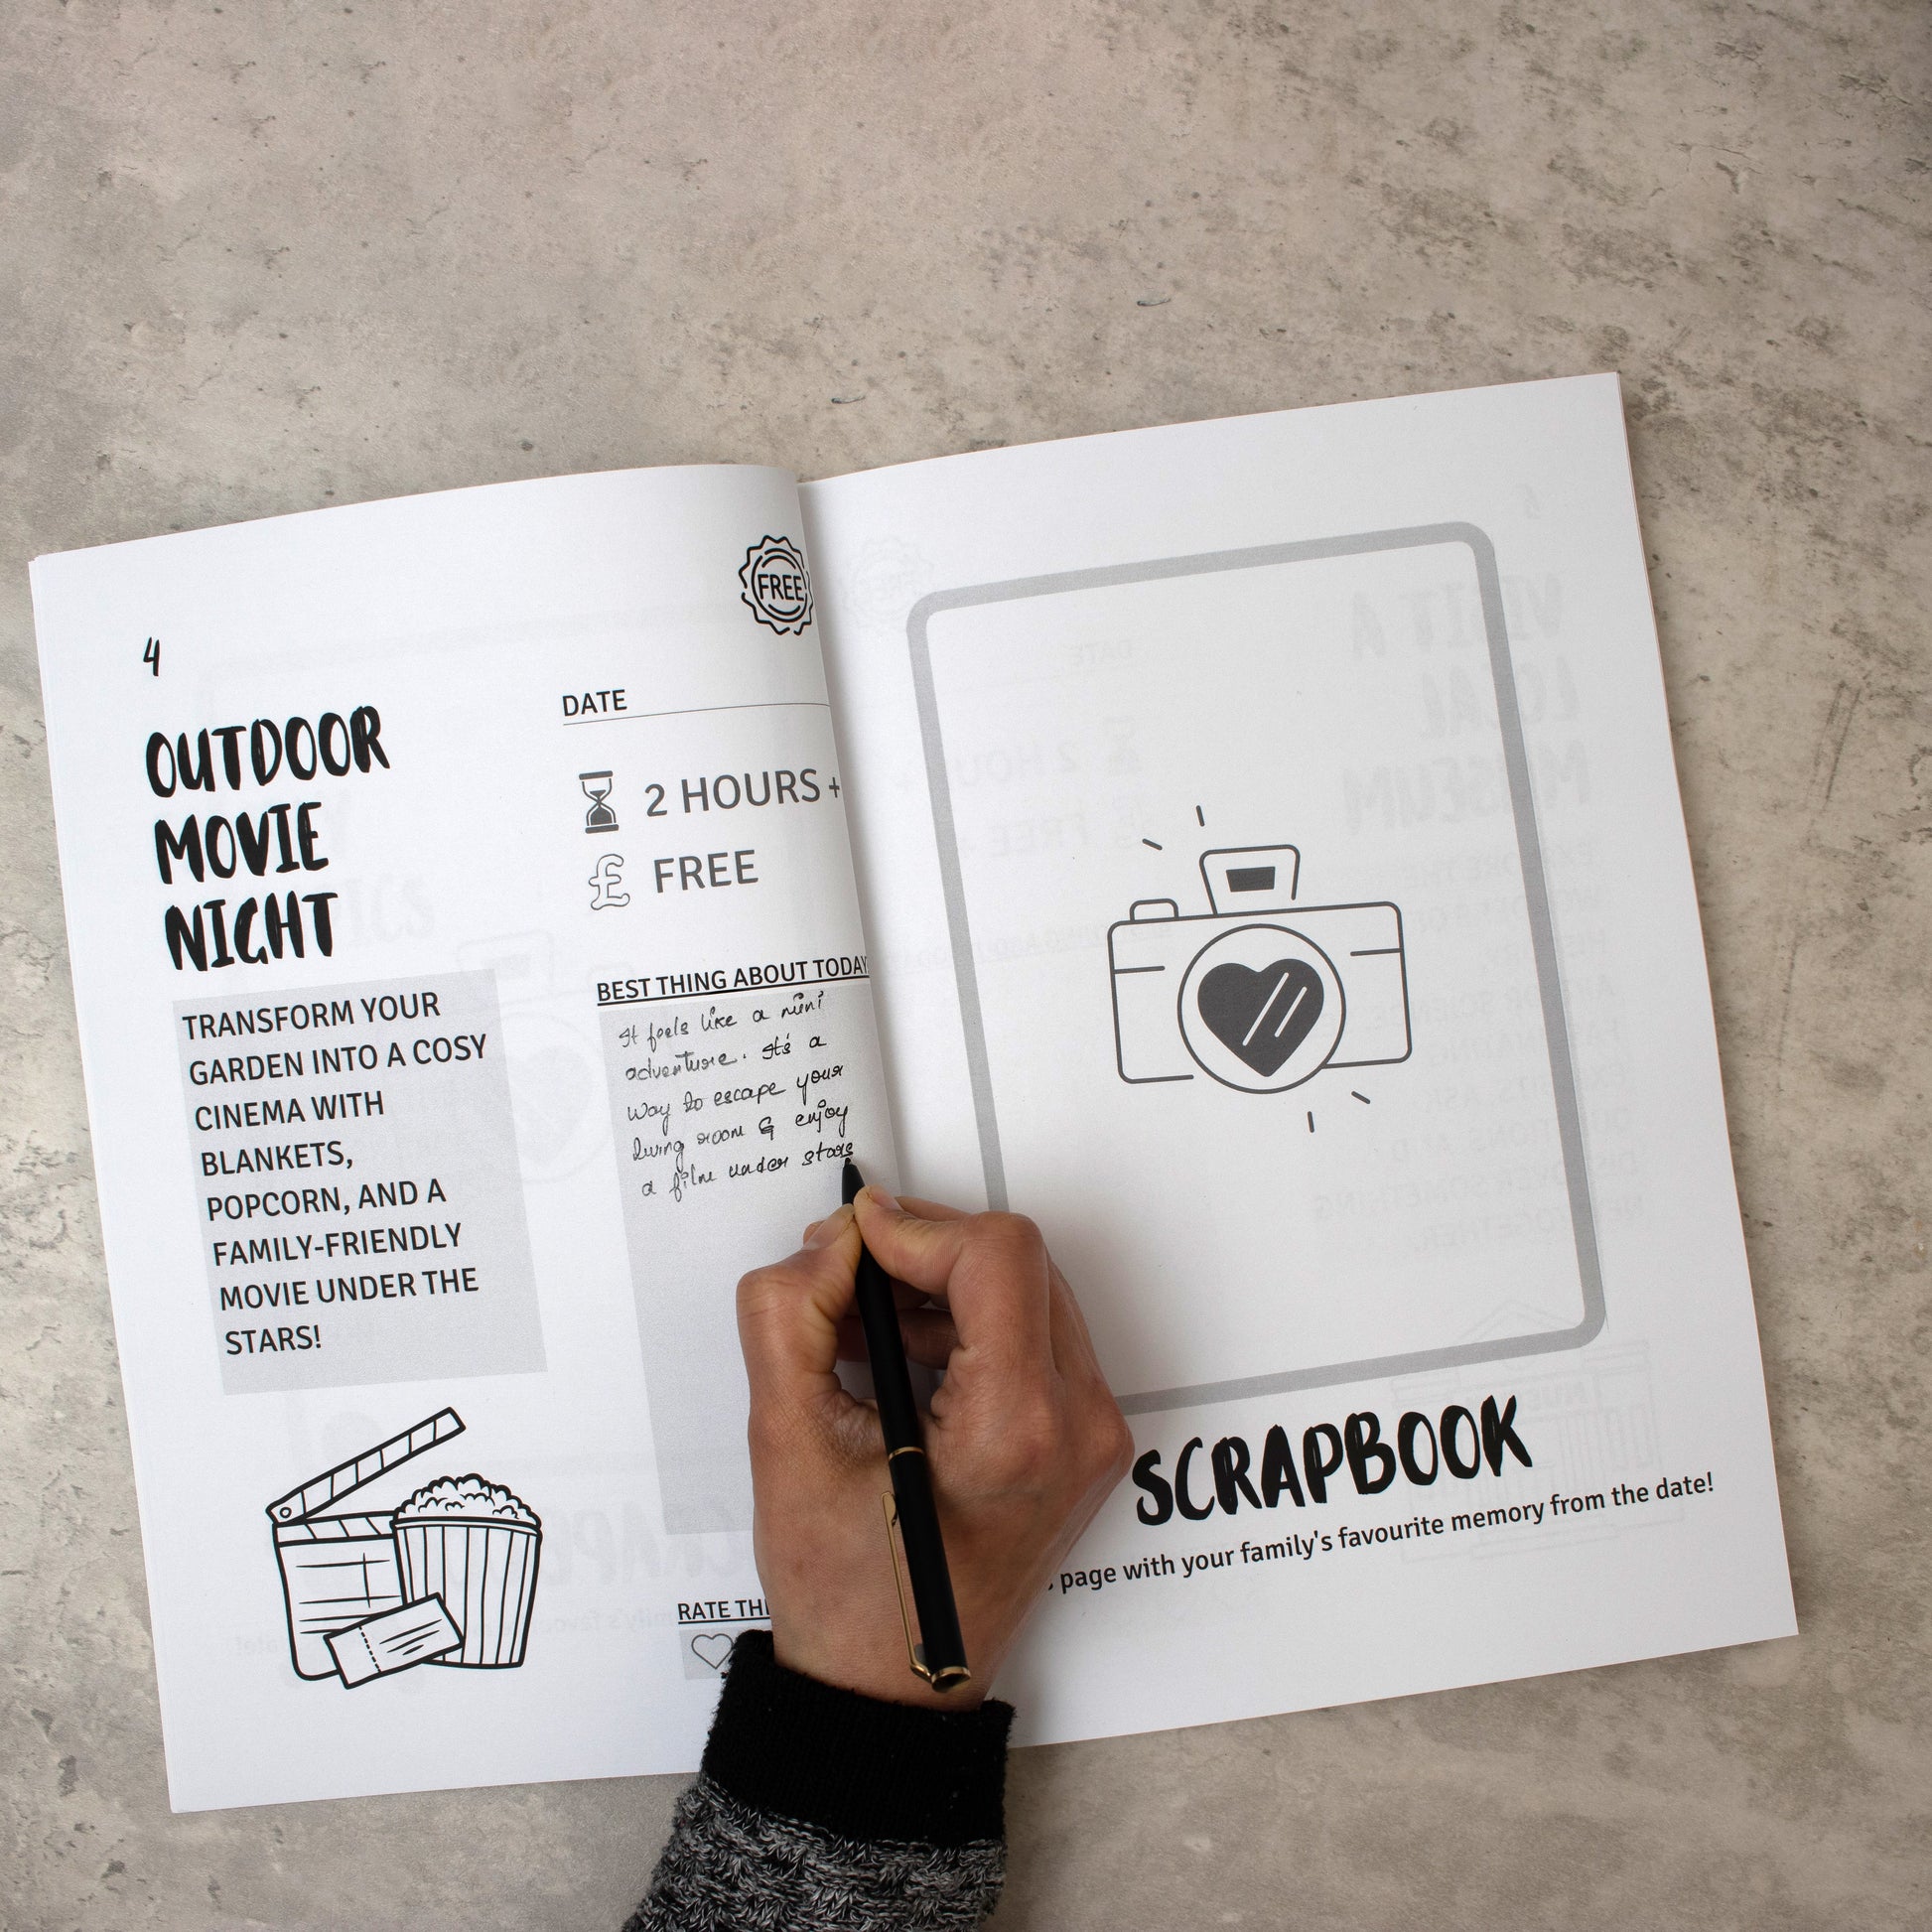 FREE
4
OUTDOOR
MOVIE
NIGHT
TRANSFORM YOUR
GARDEN INTO A COSY
CINEMA WITH
BLANKETS,
POPCORN, AND A
FAMILY-FRIENDLY
MOVIE UNDER THE
STARS!
DATE
2 HOURS +
£ FREE
BEST THING ABOUT TODAY
It feels like a mini
adventure. It's a
way to escape your
living room & enjoy
a film under stars
RATE
SCRAPBOOK
page with your family's favourite memory from the date!